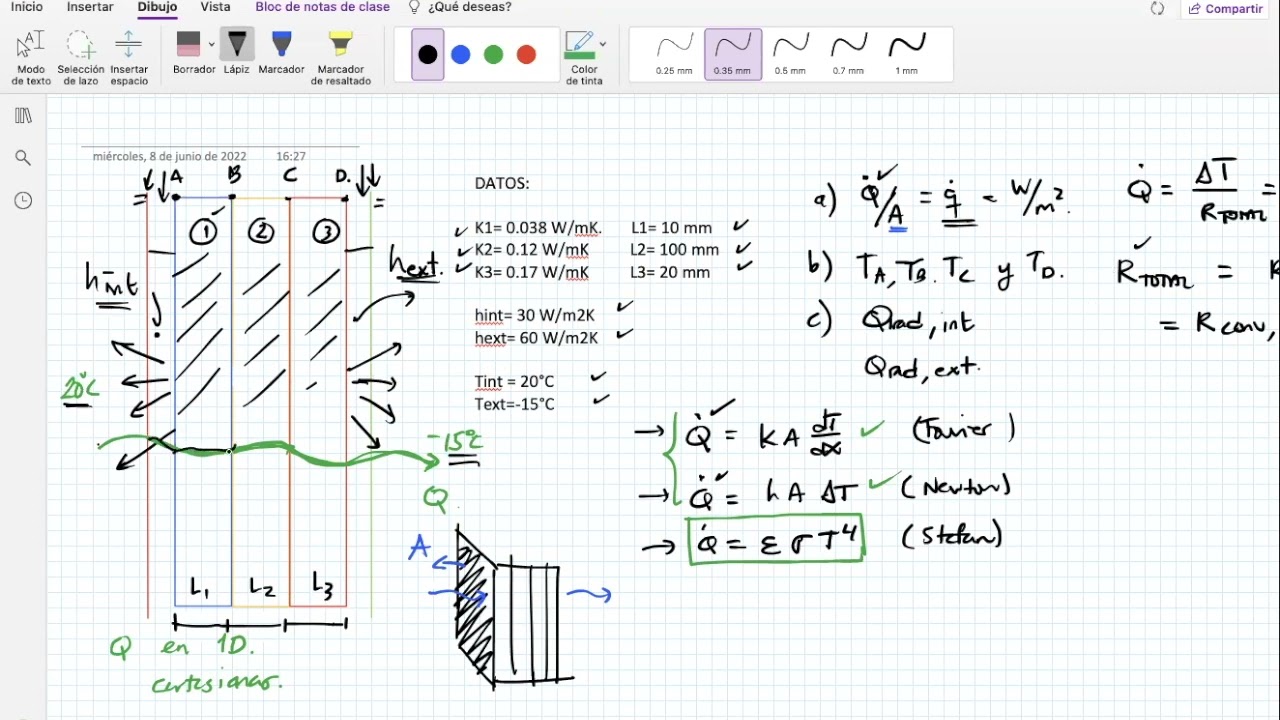 Inicio Insertar Dibujo Vista Bloc de notas de clase ¿Qué deseas? Compartir
Modo de texto
Selección de lazo
Insertar espacio
Borrador
Lápiz
Marcador
Marcador de resaltado
Color de tinta
0.25 mm 0.35 mm 0.5 mm 0.7 mm 1 mm
miércoles, 8 de junio de 2022 16:27
A B C D.
① ② ③
hint
hext.
20°C
-15°C
Q
L1 L2 L3
Q en 1D.
cartesianas.
A
DATOS:
K1= 0.038 W/mK. L1= 10 mm
K2= 0.12 W/mK L2= 100 mm
K3= 0.17 W/mK L3= 20 mm
hint= 30 W/m2K
hext= 60 W/m2K
Tint = 20°C
Text=-15°C
a) Q̇/A = q̇ = W/m².
b) TA, TB. TC y TD.
c) Qrad, int
Qrad, ext.
→ Q̇ = K A dT/dx (Fourier)
→ Q̇ = h A ΔT (Newton)
→ Q̇ = ε σ T⁴ (Stefan)
Q̇ = ΔT/RTOTAL =
RTOTAL =
= Rconv,